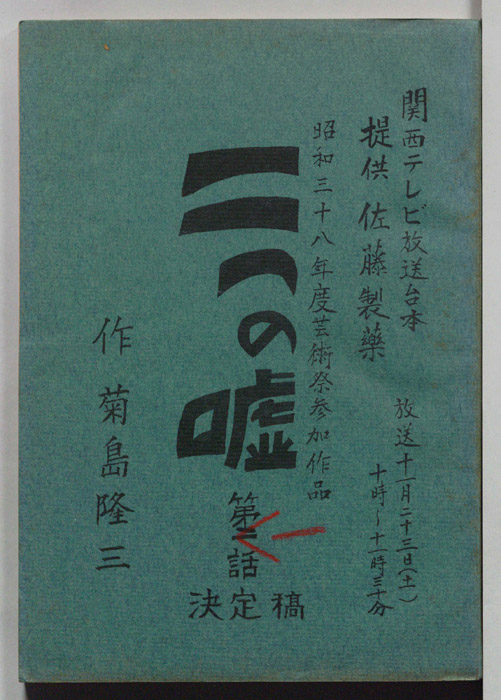 関西テレビ放送台本
提供 佐藤製薬
放送 十一月二十三日(土)
十時~十一時三十分
昭和三十八年度芸術祭参加作品
二つの嘘
第二話
一
決定稿
作 菊島隆三